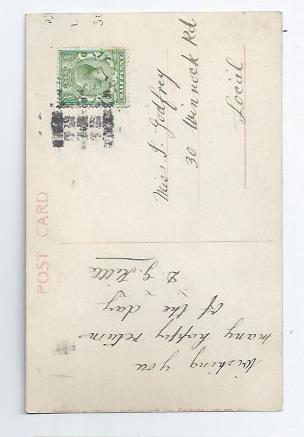 POST CARD
HALFPENNY
Wishing you
many happy returns
of the day
Miss Godfrey
30 Winnock Rd
Local